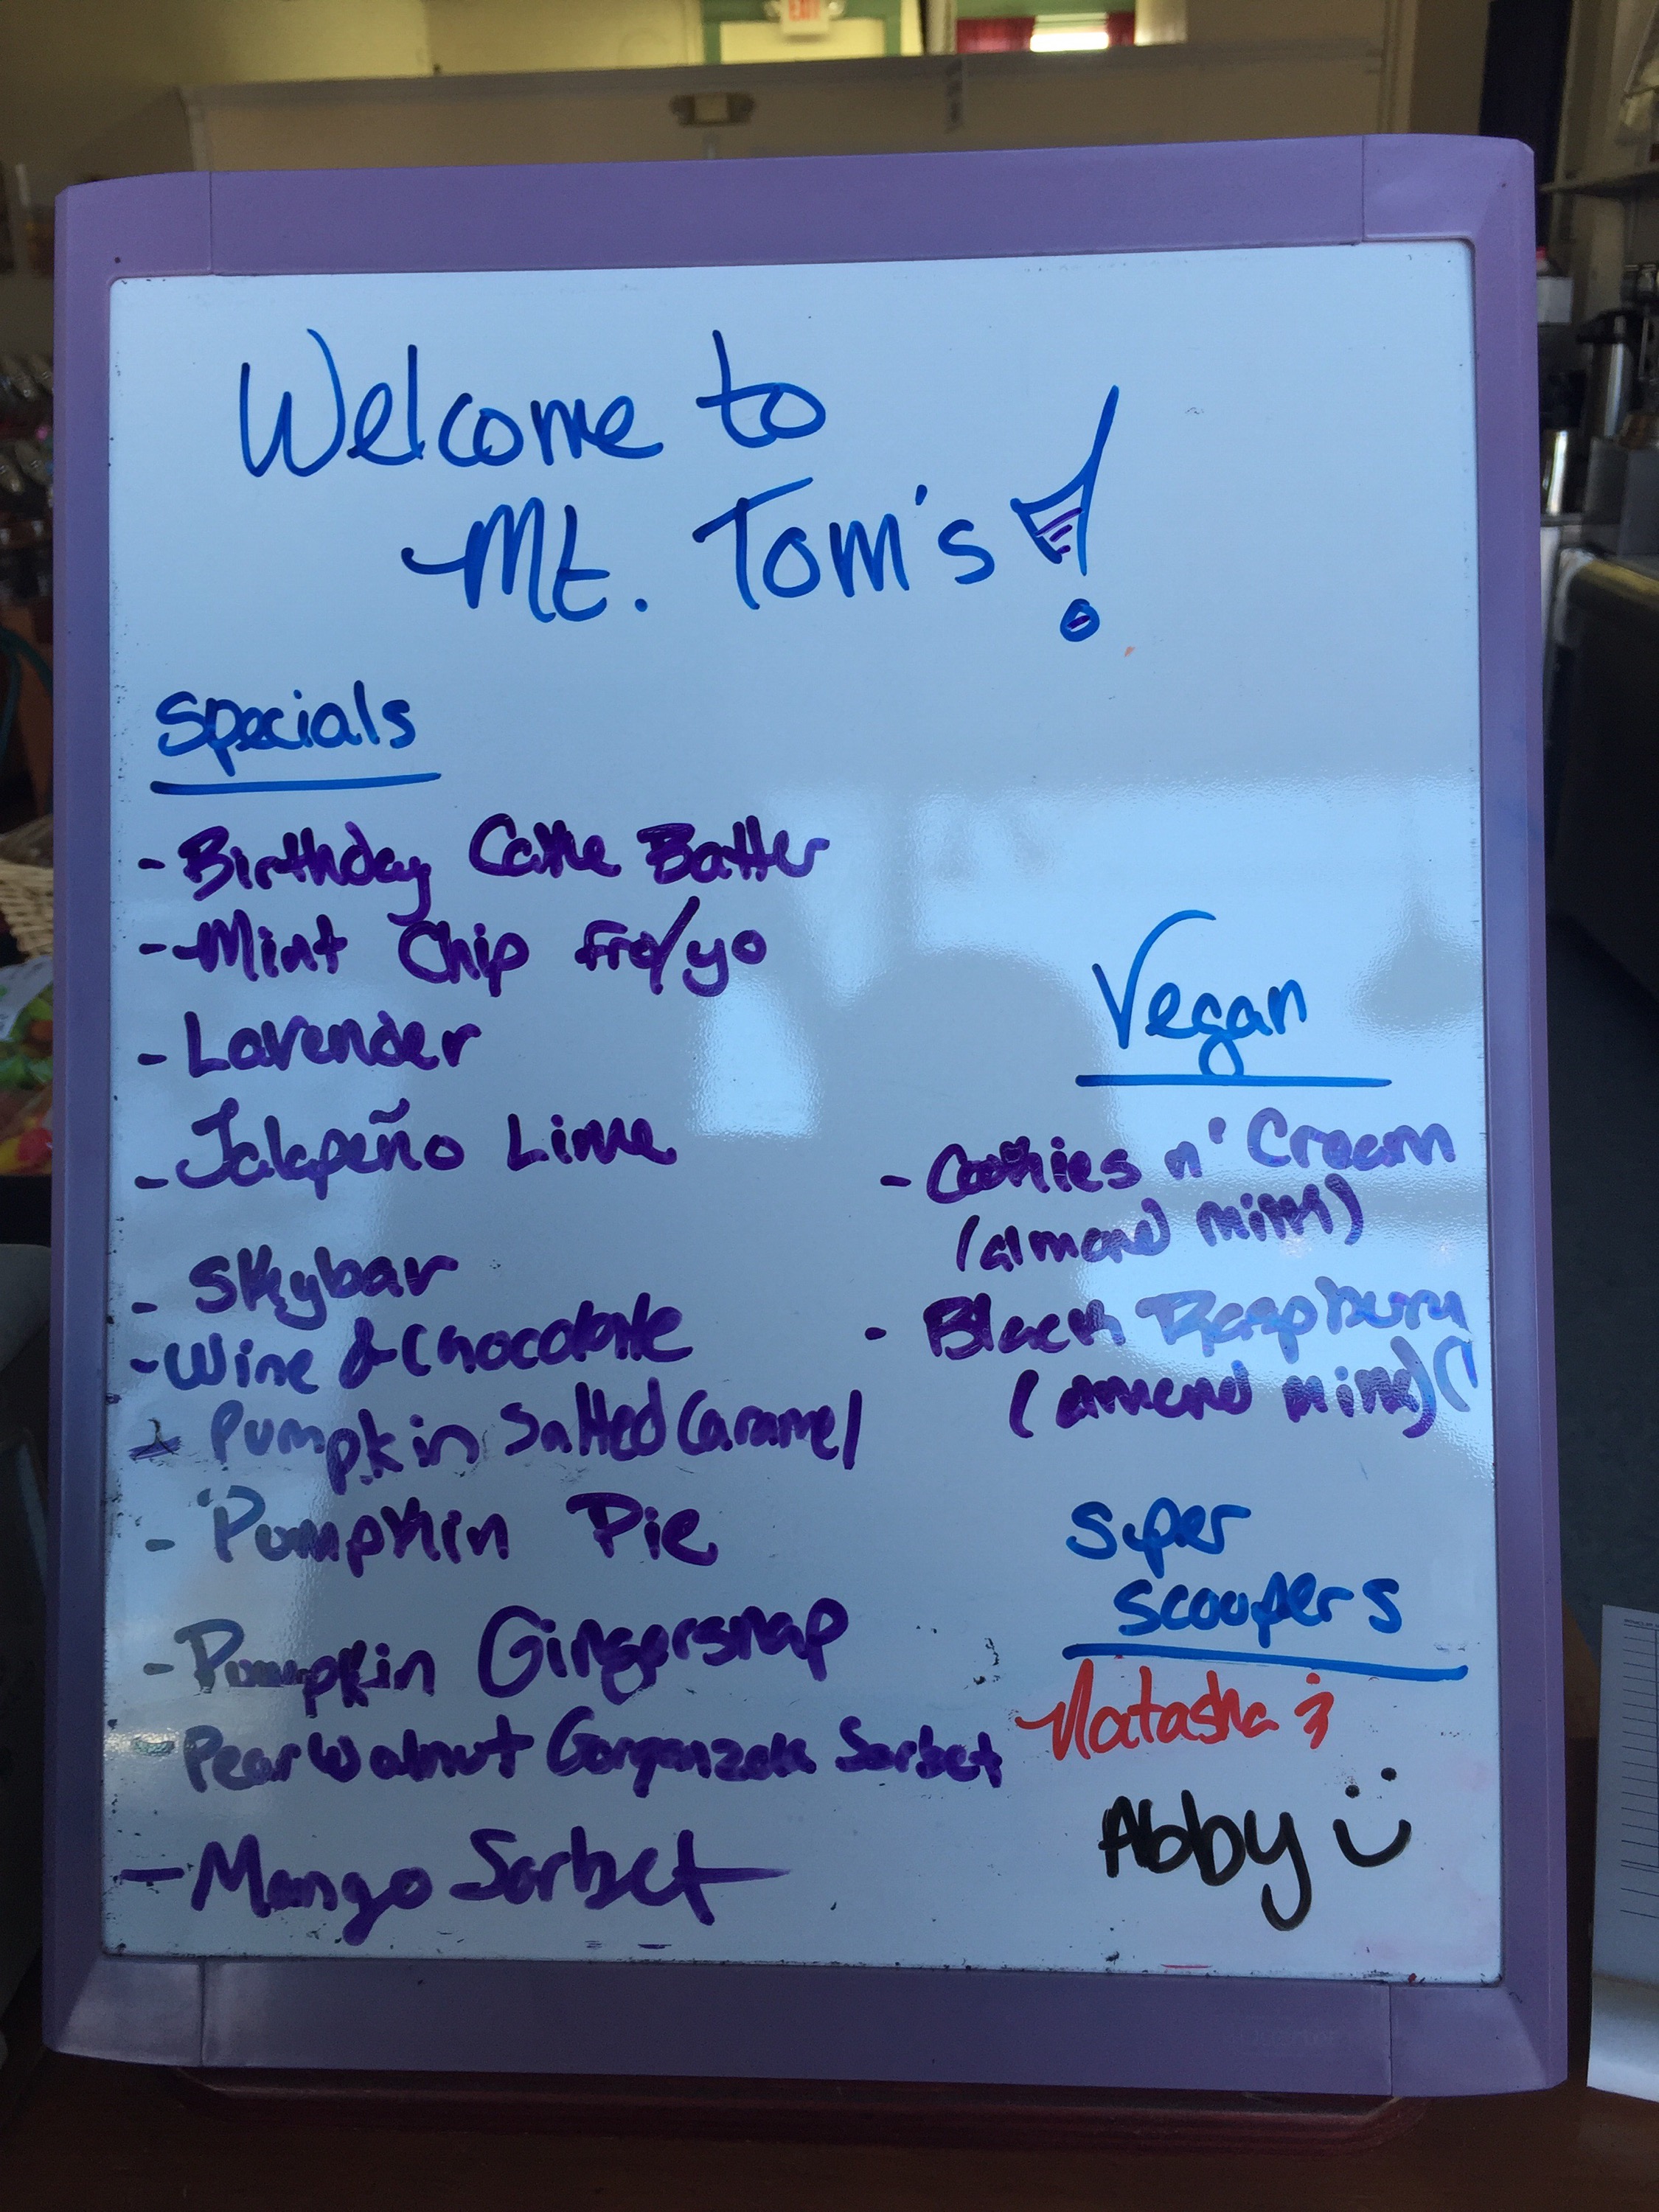 EXIT
Welcome to
Mt. Tom's !
Specials
- Birthday Cake Batter
- Mint Chip Fro/yo
- Lavender
- Jalapeño Lime
- Skybar
- Wine & Chocolate
- Pumpkin Salted Caramel
- Pumpkin Pie
- Pumpkin Gingersnap
- Pear Walnut Gorgonzola Sorbet
- Mango Sorbet
Vegan
- Cookies n' Cream
(almond milk)
- Black Raspburry
(almond milk)
Super
scoopers
Natasha &
Abby